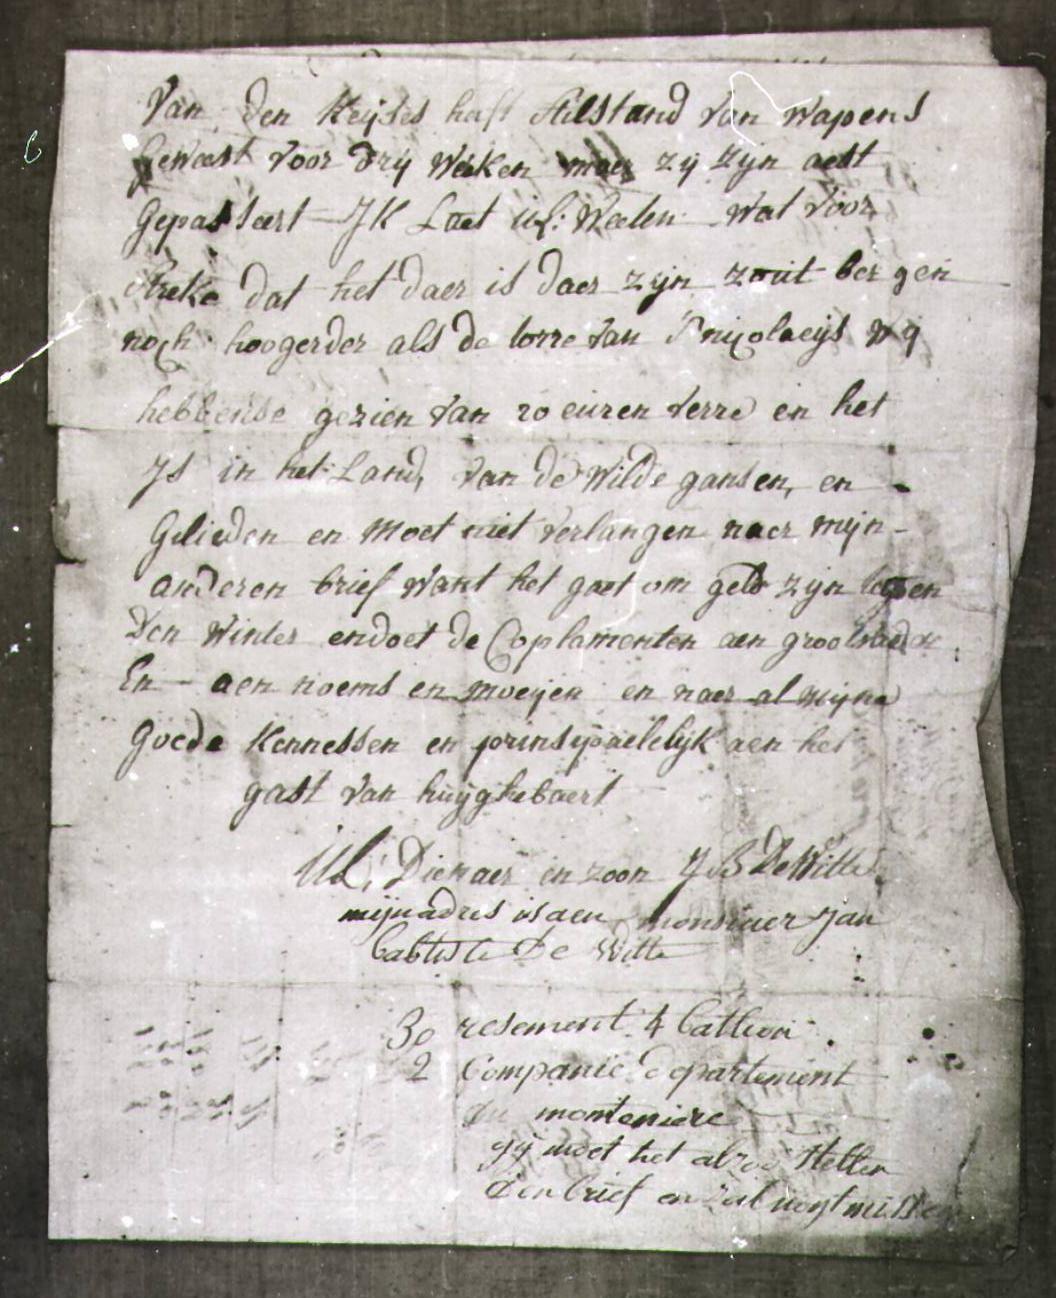 Van den Keijses heeft stilstand van wapens
geweest voor drij weeken maer zij zijn aest
gepasseert Jk Laet ul: Weeten wat voor
streke dat het daer is daer zijn zout bergen
noch hoogerder als de torre van S nijcolaeijs wij
hebbense gezien van 20 euren verre en het
Js in het Land, van de wilde gansen, en
Gelieden en moet niet verlangen naer mijn
anderen brief want het gaet om geld zijn tegen
Den winter en doet de Coplamenten aen grootvader
En aen noems en moeijen en naer al mijne
Goede kennessen en prinsijpaelelijk aen het
gast van huijghebaert
UL, Dienaer en zoon J B De Witte
mijn adres is aen monsiuer Jan
babtiste De Witte
30 resement 4 batlion
2 Companie departement
du monteniere
gij moet het alzoo stellen
den brief en zal noijt missen